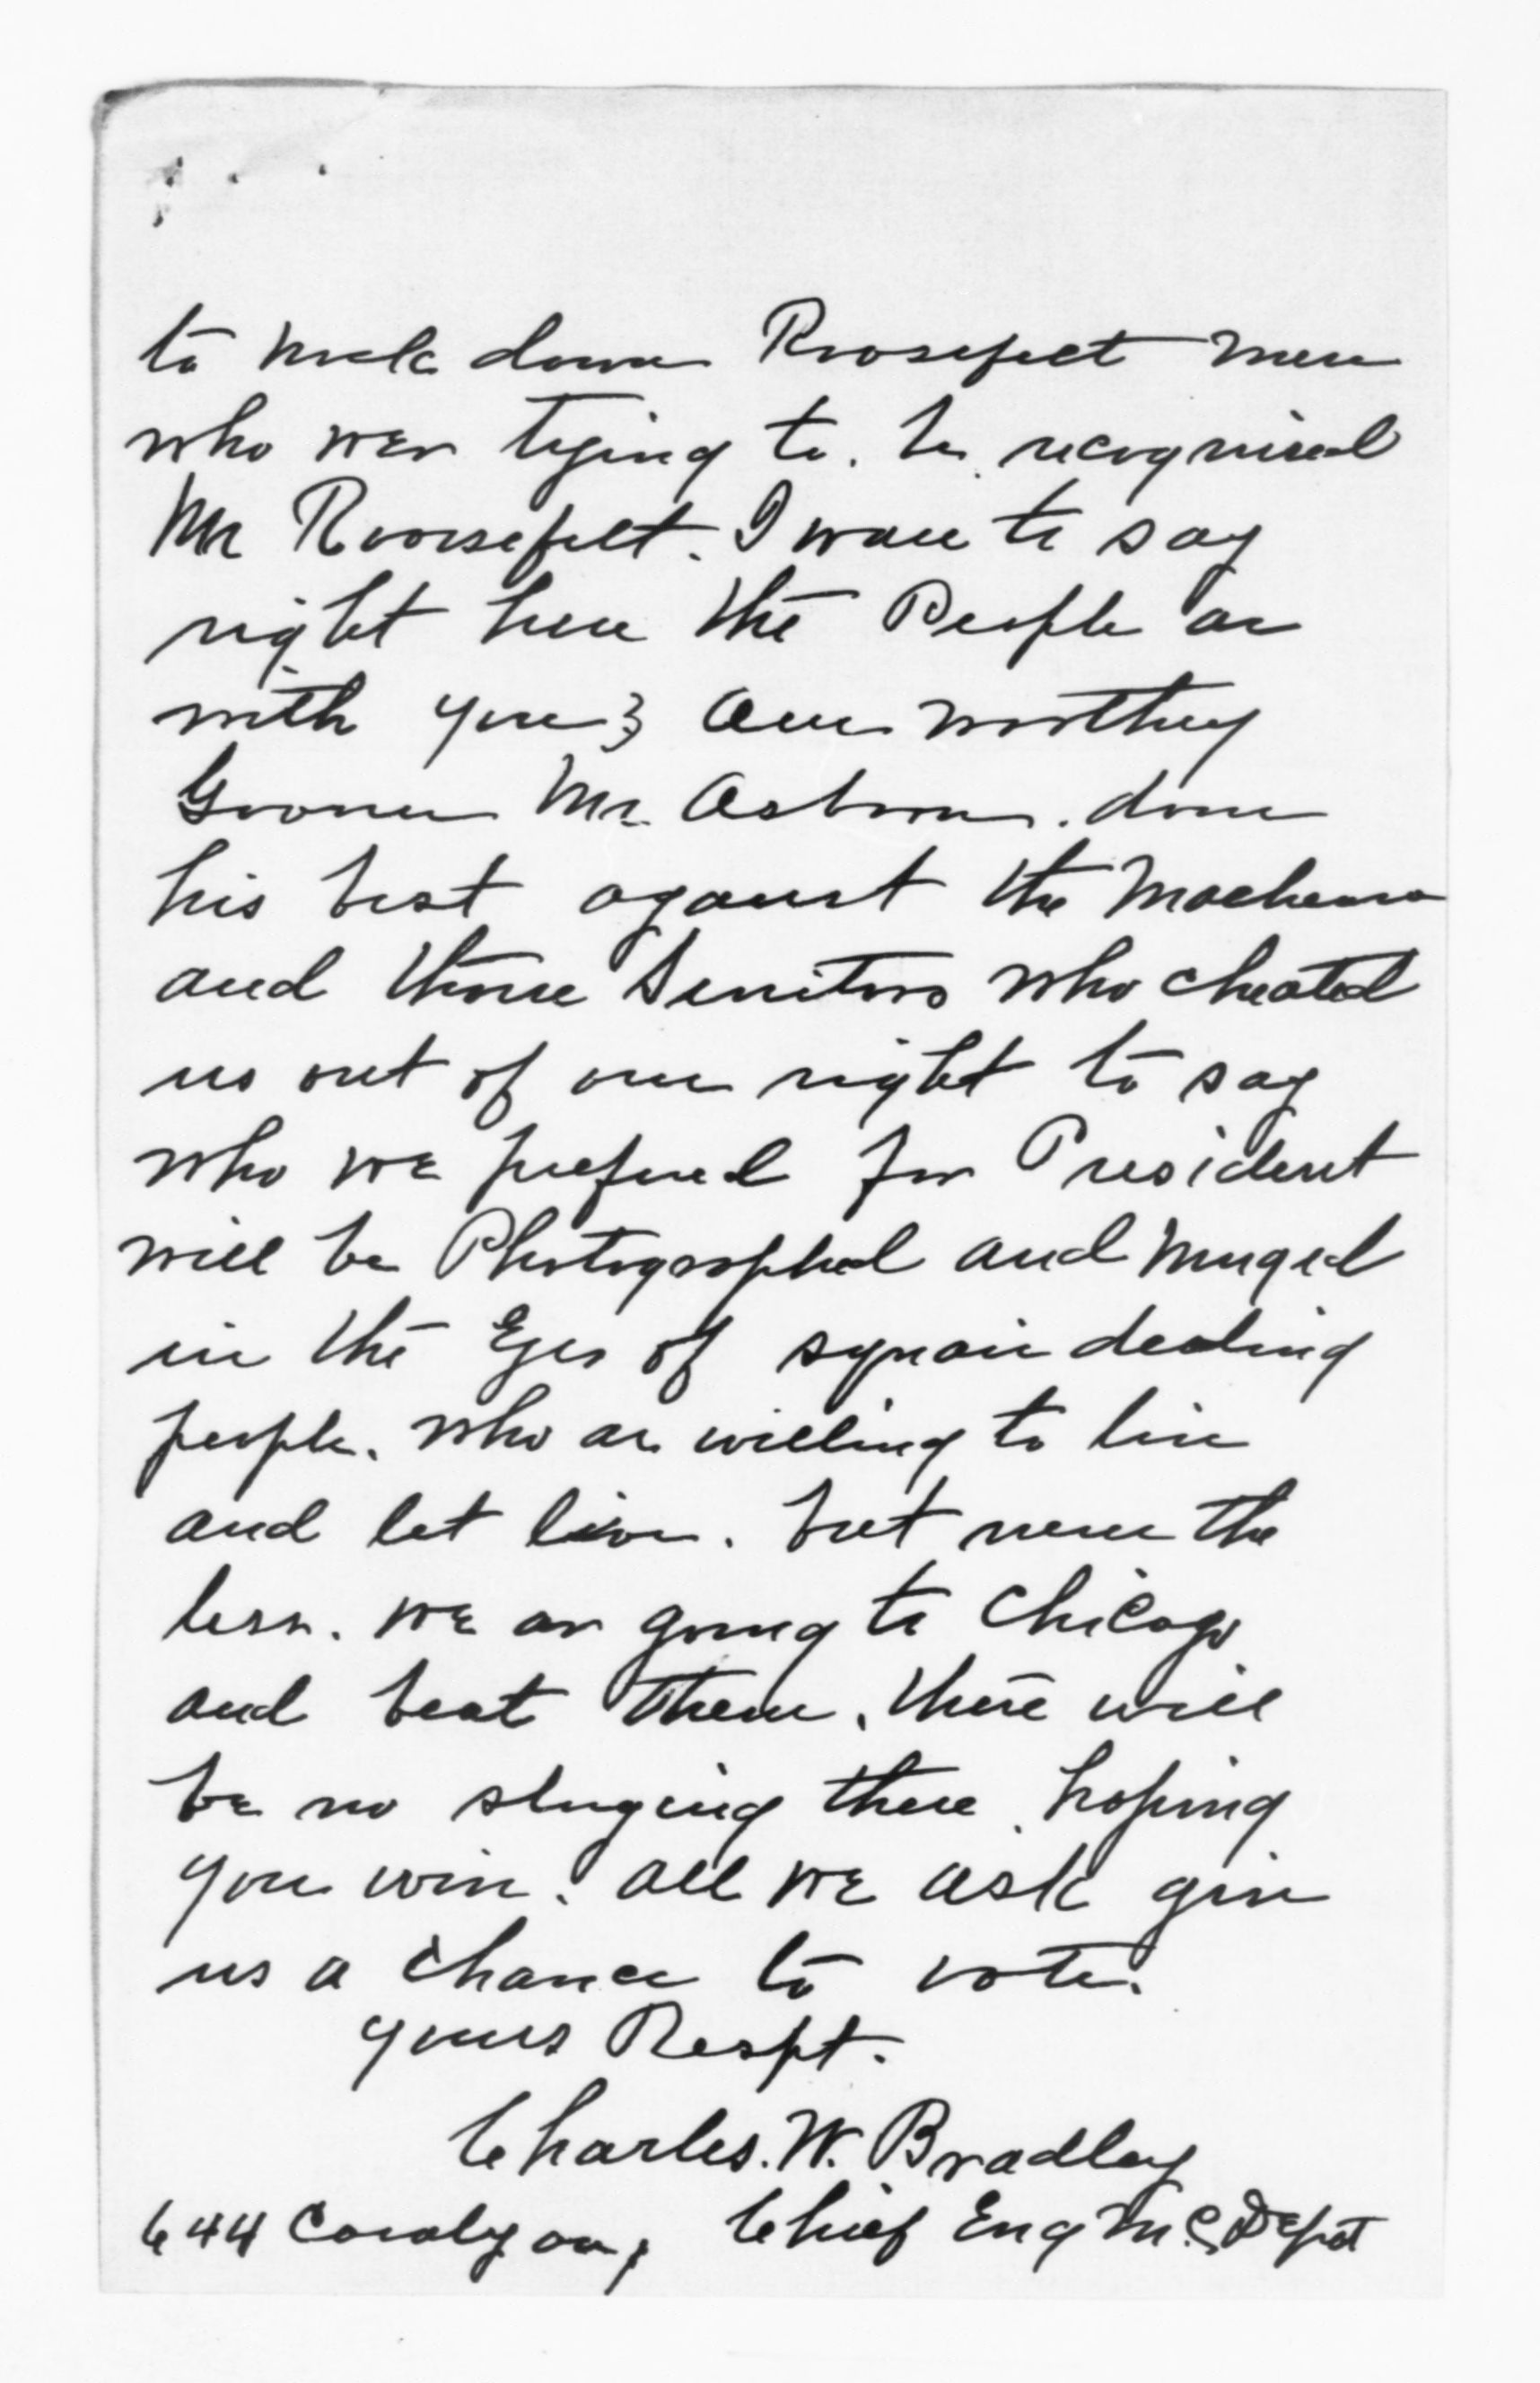 to down Roosefelt men
who wer trying to. be recognised
Mr Roosefelt. I want to say
right here the People ar
with you & Our worthy
Govoner Mr. Osborn. done
his best against the
and those Senitors who cheated
us out of our right to say
who we prefered for President
will be Photographed and muged
in the Eyes of squair dealing
people. who ar willing to live
and let live. but never the
less. we ar going to Chicago
and beat them. there will
be no sluging there. hoping
you win. all we ask give
us a chance to vote.
yours Respt.
Charles. W. Bradley
644 Chief Eng M.C. Depot